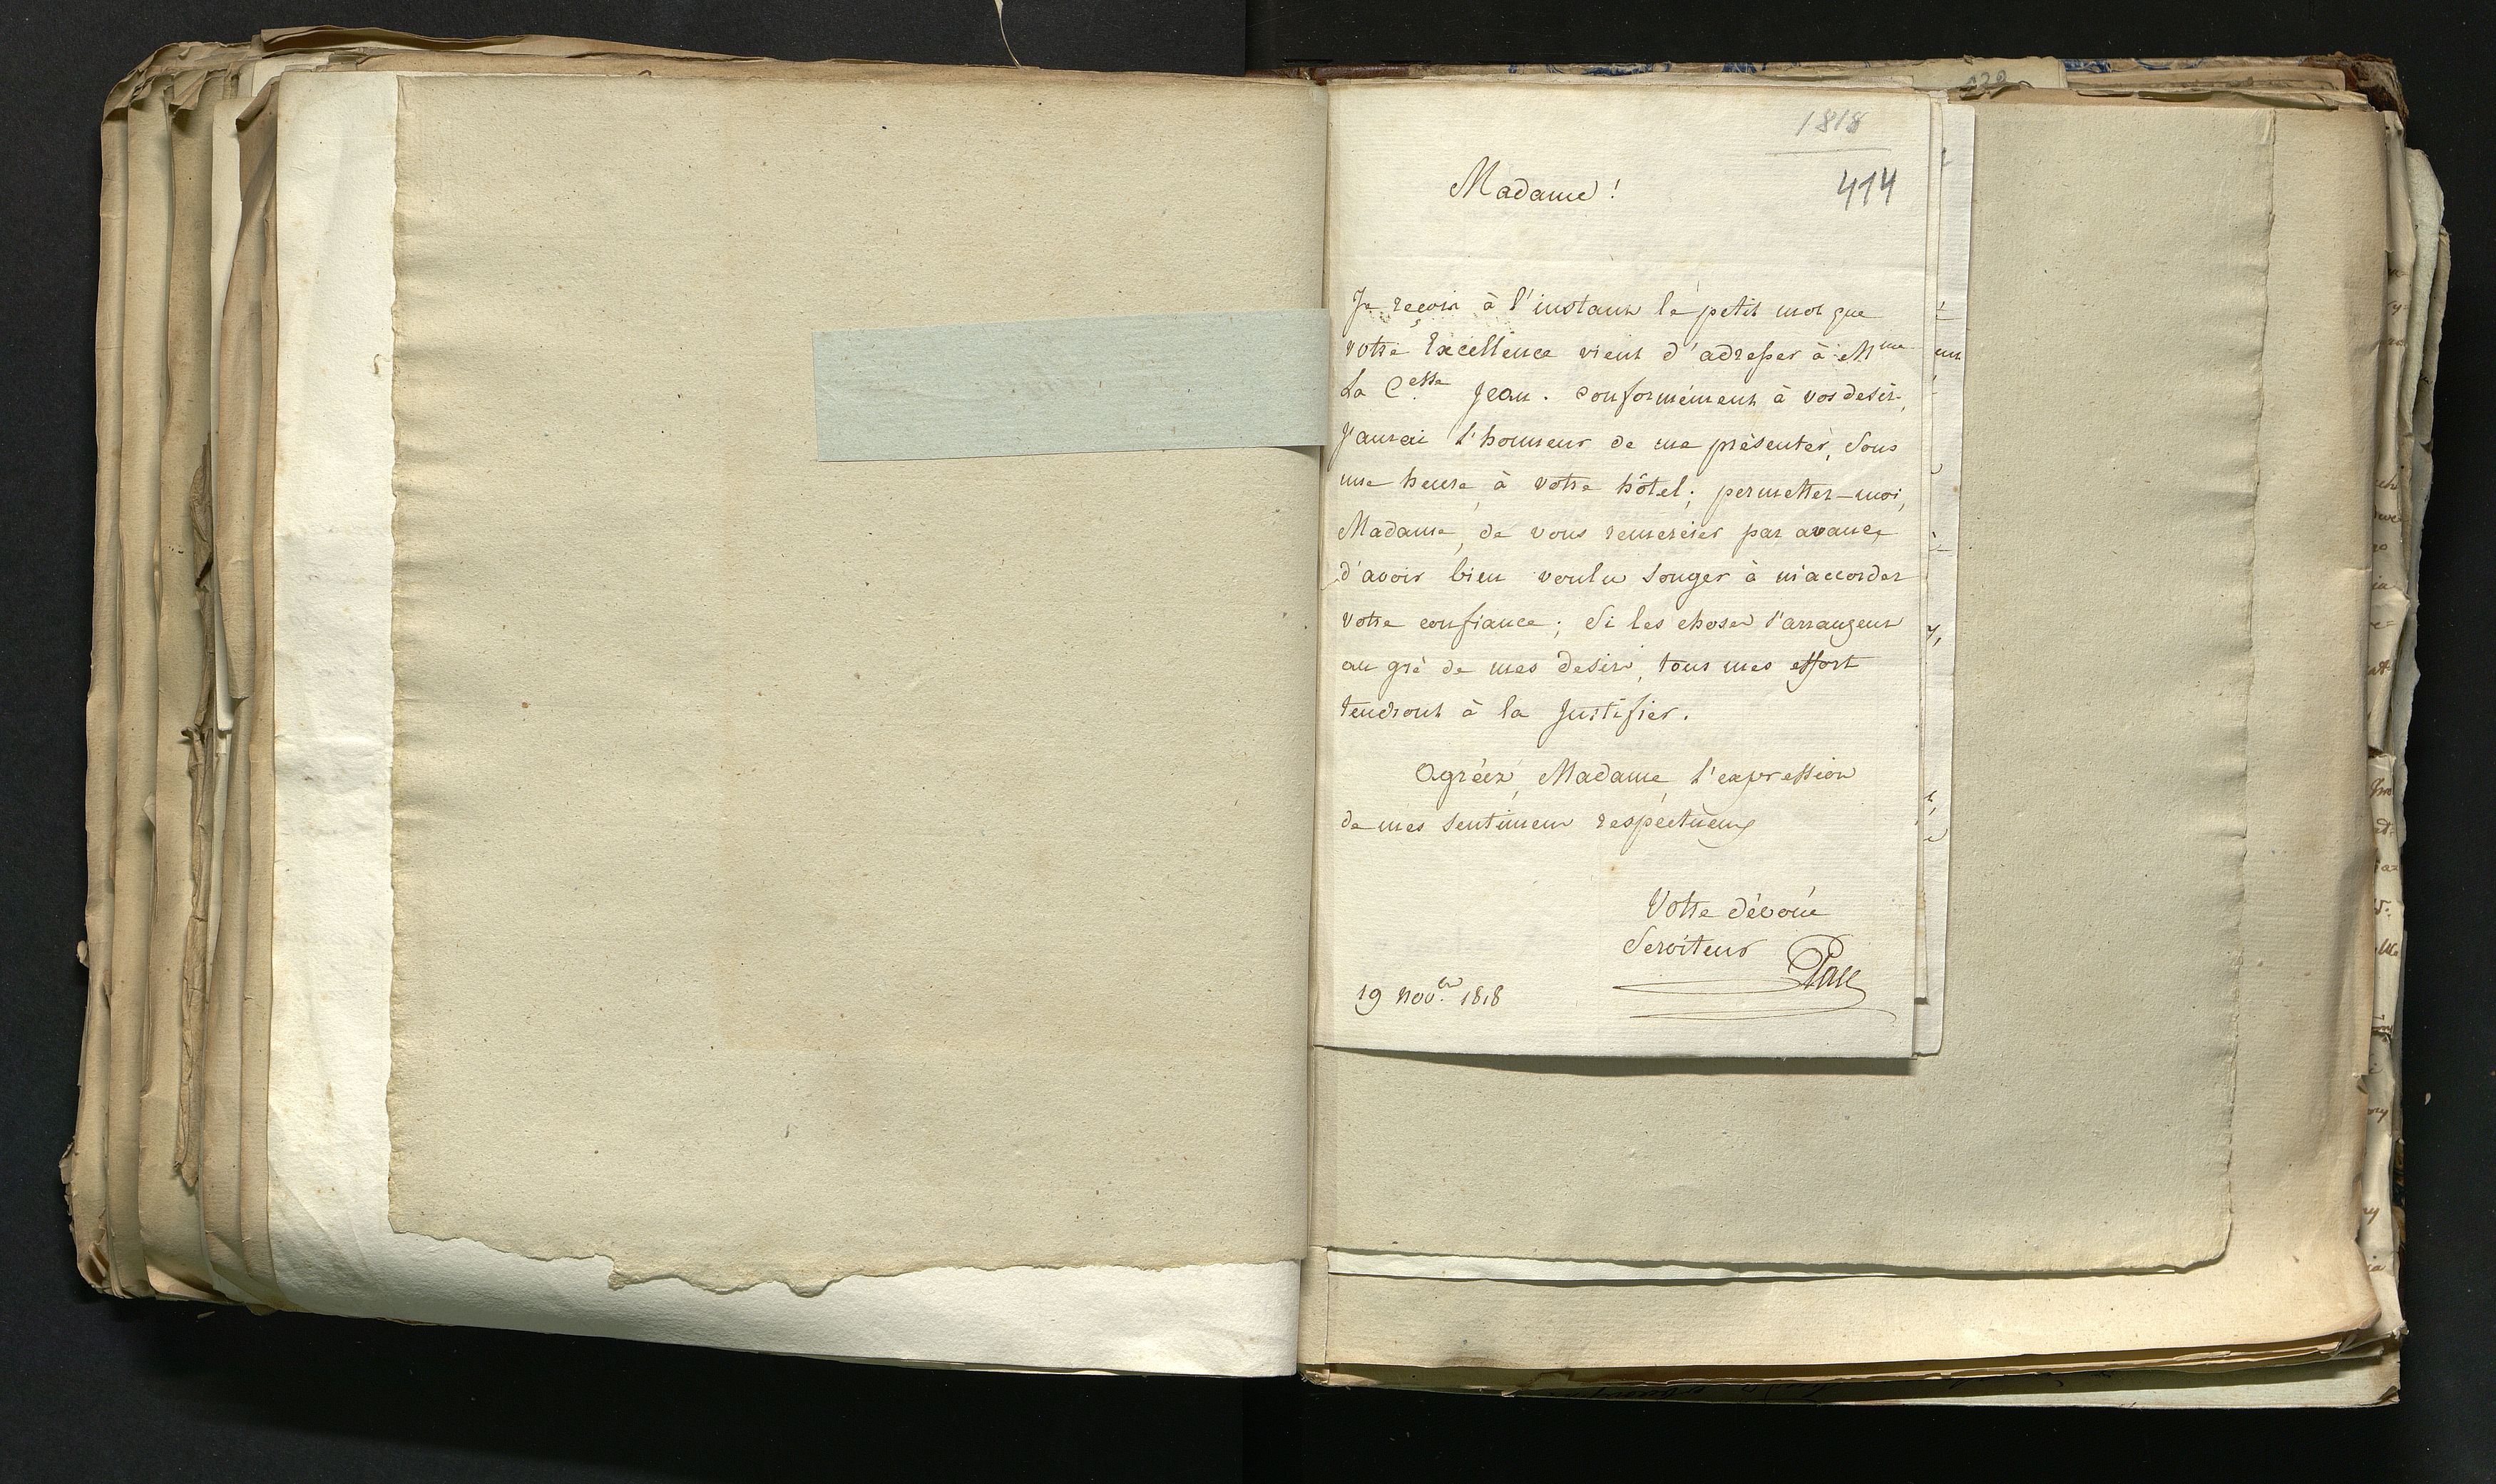 1818
Madame !
414
Je reçois à l'instant le petit mot que
votre Excellence vient d'adresser à Mme
La Cesse Jean. conformément à vos desirs,
J'aurai l'honneur de me présenter, Sous
une heure, à votre hôtel; permettez-moi,
Madame, de vous remercier par avance
d'avoir bien voulu Songer à m'accorder
votre confiance; Si les choses s'arrangent
au gré de mes desirs, tous mes effort
tendront à la Justifier.
Agréez, Madame, l'expression
de mes Sentimens respectueux
Votre dévoué
Serviteur
19 Nov.er 1818